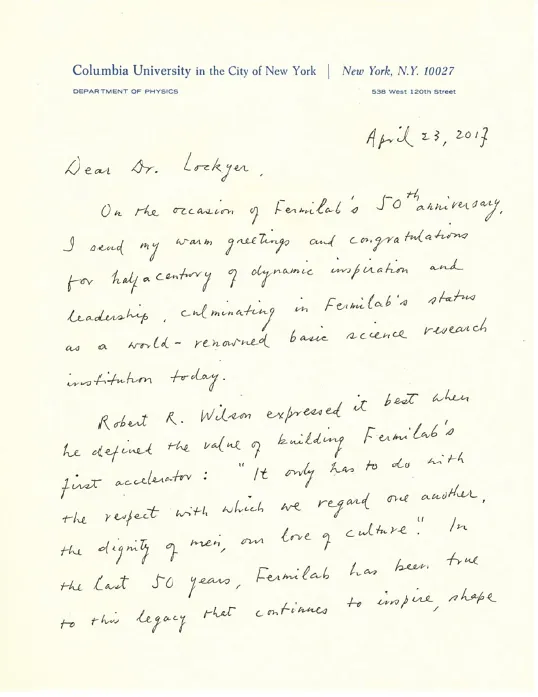 Columbia University in the City of New York | New York, N.Y. 10027
DEPARTMENT OF PHYSICS 538 West 120th Street
April 23, 2017
Dear Dr. Lockyer,
On the occasion of Fermilab's 50th anniversary,
I send my warm greetings and congratulations
for half a century of dynamic inspiration and
leadership, culminating in Fermilab's status
as a world-renowned basic science research
institution today.
Robert R. Wilson expressed it best when
he defined the value of building Fermilab's
first accelerator: "It only has to do with
the respect with which we regard one another,
the dignity of men, our love of culture." In
the last 50 years, Fermilab has been true
to this legacy that continues to inspire, shape